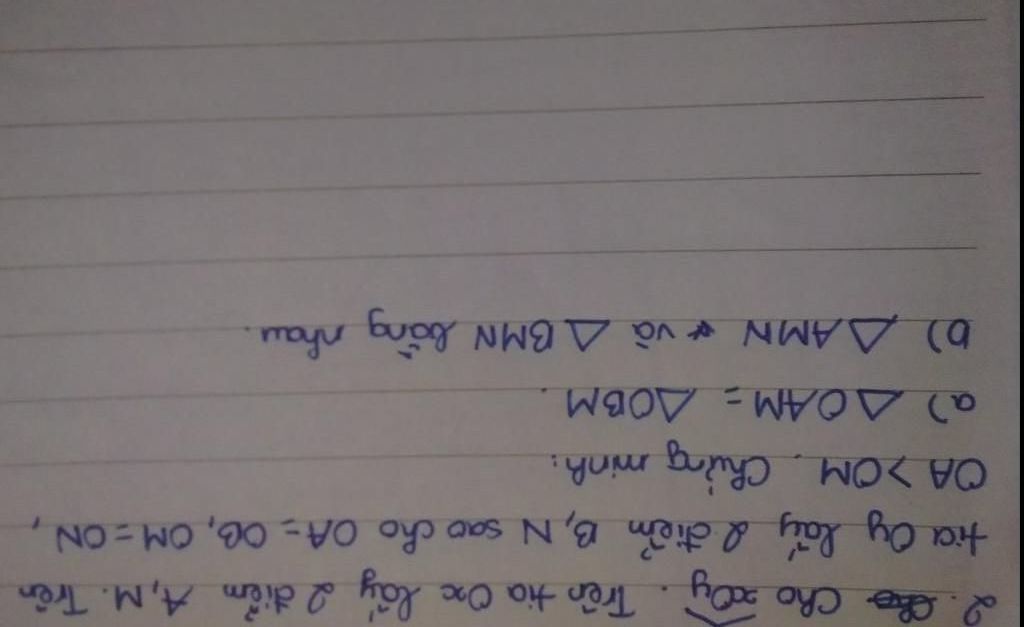 2. Cho xOy. Trên tia Ox lấy 2 điểm A, M. Trên
tia Oy lấy 2 điểm B, N sao cho OA = OB, OM = ON,
OA > OM. Chứng minh:
a) △OAM = △OBM.
b) △AMN và △BMN bằng nhau.